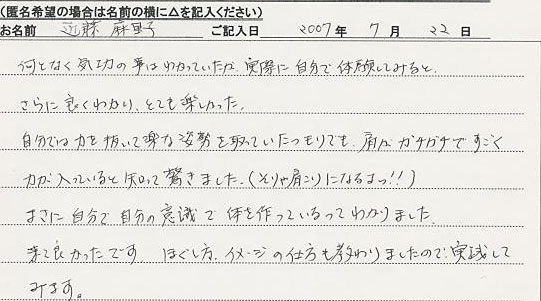 (匿名希望の場合は名前の横に△を記入ください)
お名前 近藤 麻里子 ご記入日 2007年 7月 22日
何となく気功の事はわかっていたが、実際に自分で体験してみると、
さらに良くわかり、とても楽しかった。
自分では力を抜いて楽な姿勢を取っていたつもりでも、肩がガチガチですごく
力が入っていると知って驚きました。(そりゃ肩こりになるよっ!!)
まさに自分で自分の意識で体を作っているってわかりました。
来て良かったです。 ほぐし方、イメージの仕方も教わりましたので、実践して
みます。